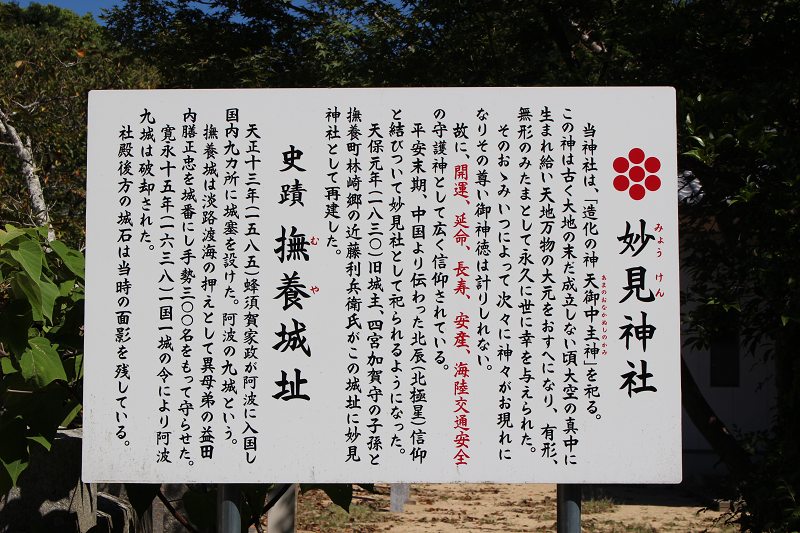 妙見神社
みょう けん
当神社は、「造化の神 天御中主神」を祀る。
あまのおなかぬしのかみ
この神は古く大地の未だ成立しない頃大空の真中に
生まれ給い天地万物の大元をおすへになり、有形、
無形のみたまとして永久に世に幸を与えられた。
そのおゝみいつによって次々に神々がお現れに
なりその尊い御神徳は計りしれない。
故に、開運、延命、長寿、安産、海陸交通安全
の守護神として広く信仰されている。
平安末期、中国より伝わった北辰(北極星)信仰
と結びついて妙見社として祀られるようになった。
天保元年(一八三〇)旧城主、四宮加賀守の子孫と
撫養町林崎郷の近藤利兵衛氏がこの城址に妙見
神社として再建した。
史蹟 撫養城址
むや
天正十三年(一五八五)蜂須賀家政が阿波に入国し
国内九カ所に城塞を設けた。阿波の九城という。
撫養城は淡路渡海の押えとして異母弟の益田
内膳正忠を城番にし手勢三〇〇名をもって守らせた。
寛永十五年(一六三八)一国一城の令により阿波
九城は破却された。
社殿後方の城石は当時の面影を残している。